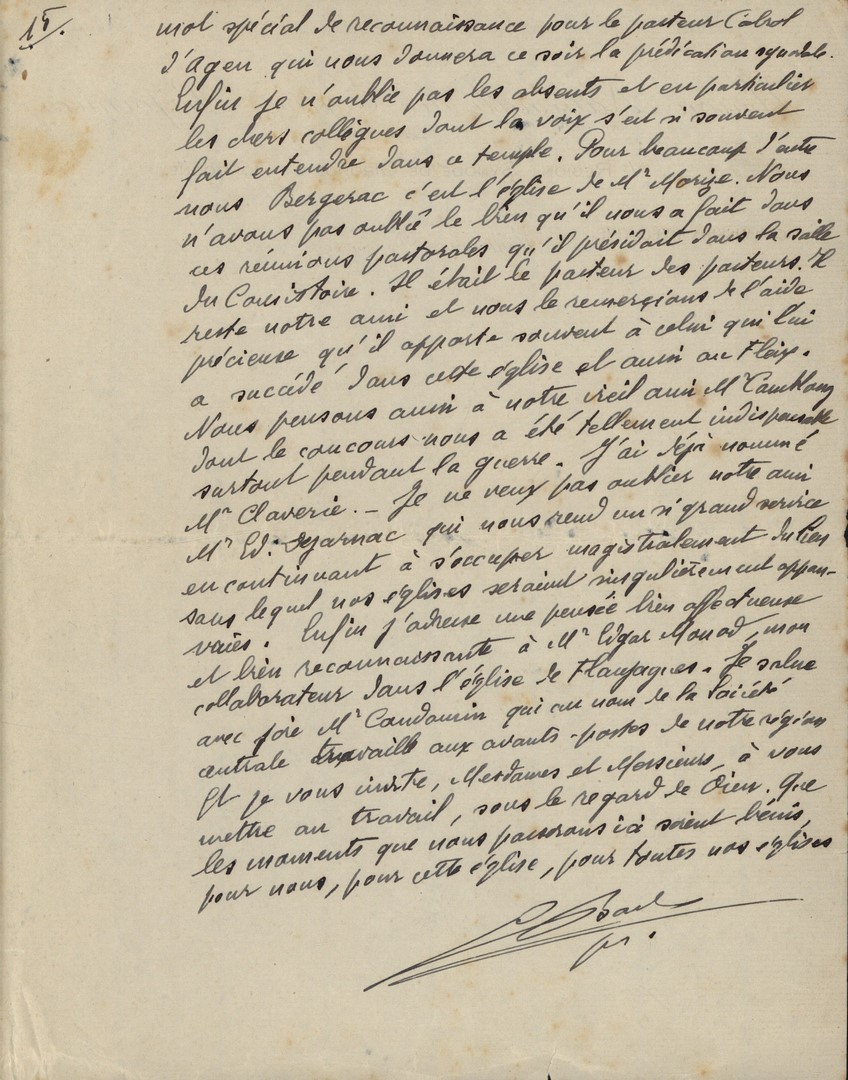 15/.
mot spécial de reconnaissance pour le pasteur Cabrol
d'Agen qui nous donnera ce soir la prédication synodale.
Enfin je n'oublie pas les absents et en particulier
les chers collègues dont la voix s'est si souvent
fait entendre dans ce temple. Pour beaucoup d'entre
nous Bergerac c'est l'église de Mr Morize. Nous
n'avons pas oublié le bien qu'il nous a fait dans
ces réunions pastorales qu'il présidait dans la salle
du Consistoire. Il était le pasteur des pasteurs. Il
reste notre ami et nous le remercions de l'aide
précieuse qu'il apporte souvent à celui qui lui
a succédé dans cette église et aussi au Fleix.
Nous pensons aussi à notre vieil ami Mr
dont le concours nous a été tellement indispensable
surtout pendant la guerre. J'ai déjà nommé
Mr Claverie. — Je ne veux pas oublier notre ami
Mr Ed. Dejarnac qui nous rend un si grand service
en continuant à s'occuper magistralement du Lien
sans lequel nos églises seraient singulièrement appau-
vries. Enfin j'adresse une pensée bien affectueuse
et bien reconnaissante à Mr Edgar Monod, mon
collaborateur dans l'église de Flaujagues. Je salue
avec joie Mr qui au nom de la Société
centrale travaille aux avants-postes de notre région
Et je vous invite, Mesdames et Messieurs, à vous
mettre au travail, sous le regard de Dieu. Que
les moments que nous passerons ici soient bénis,
pour nous, pour cette église, pour toutes nos églises